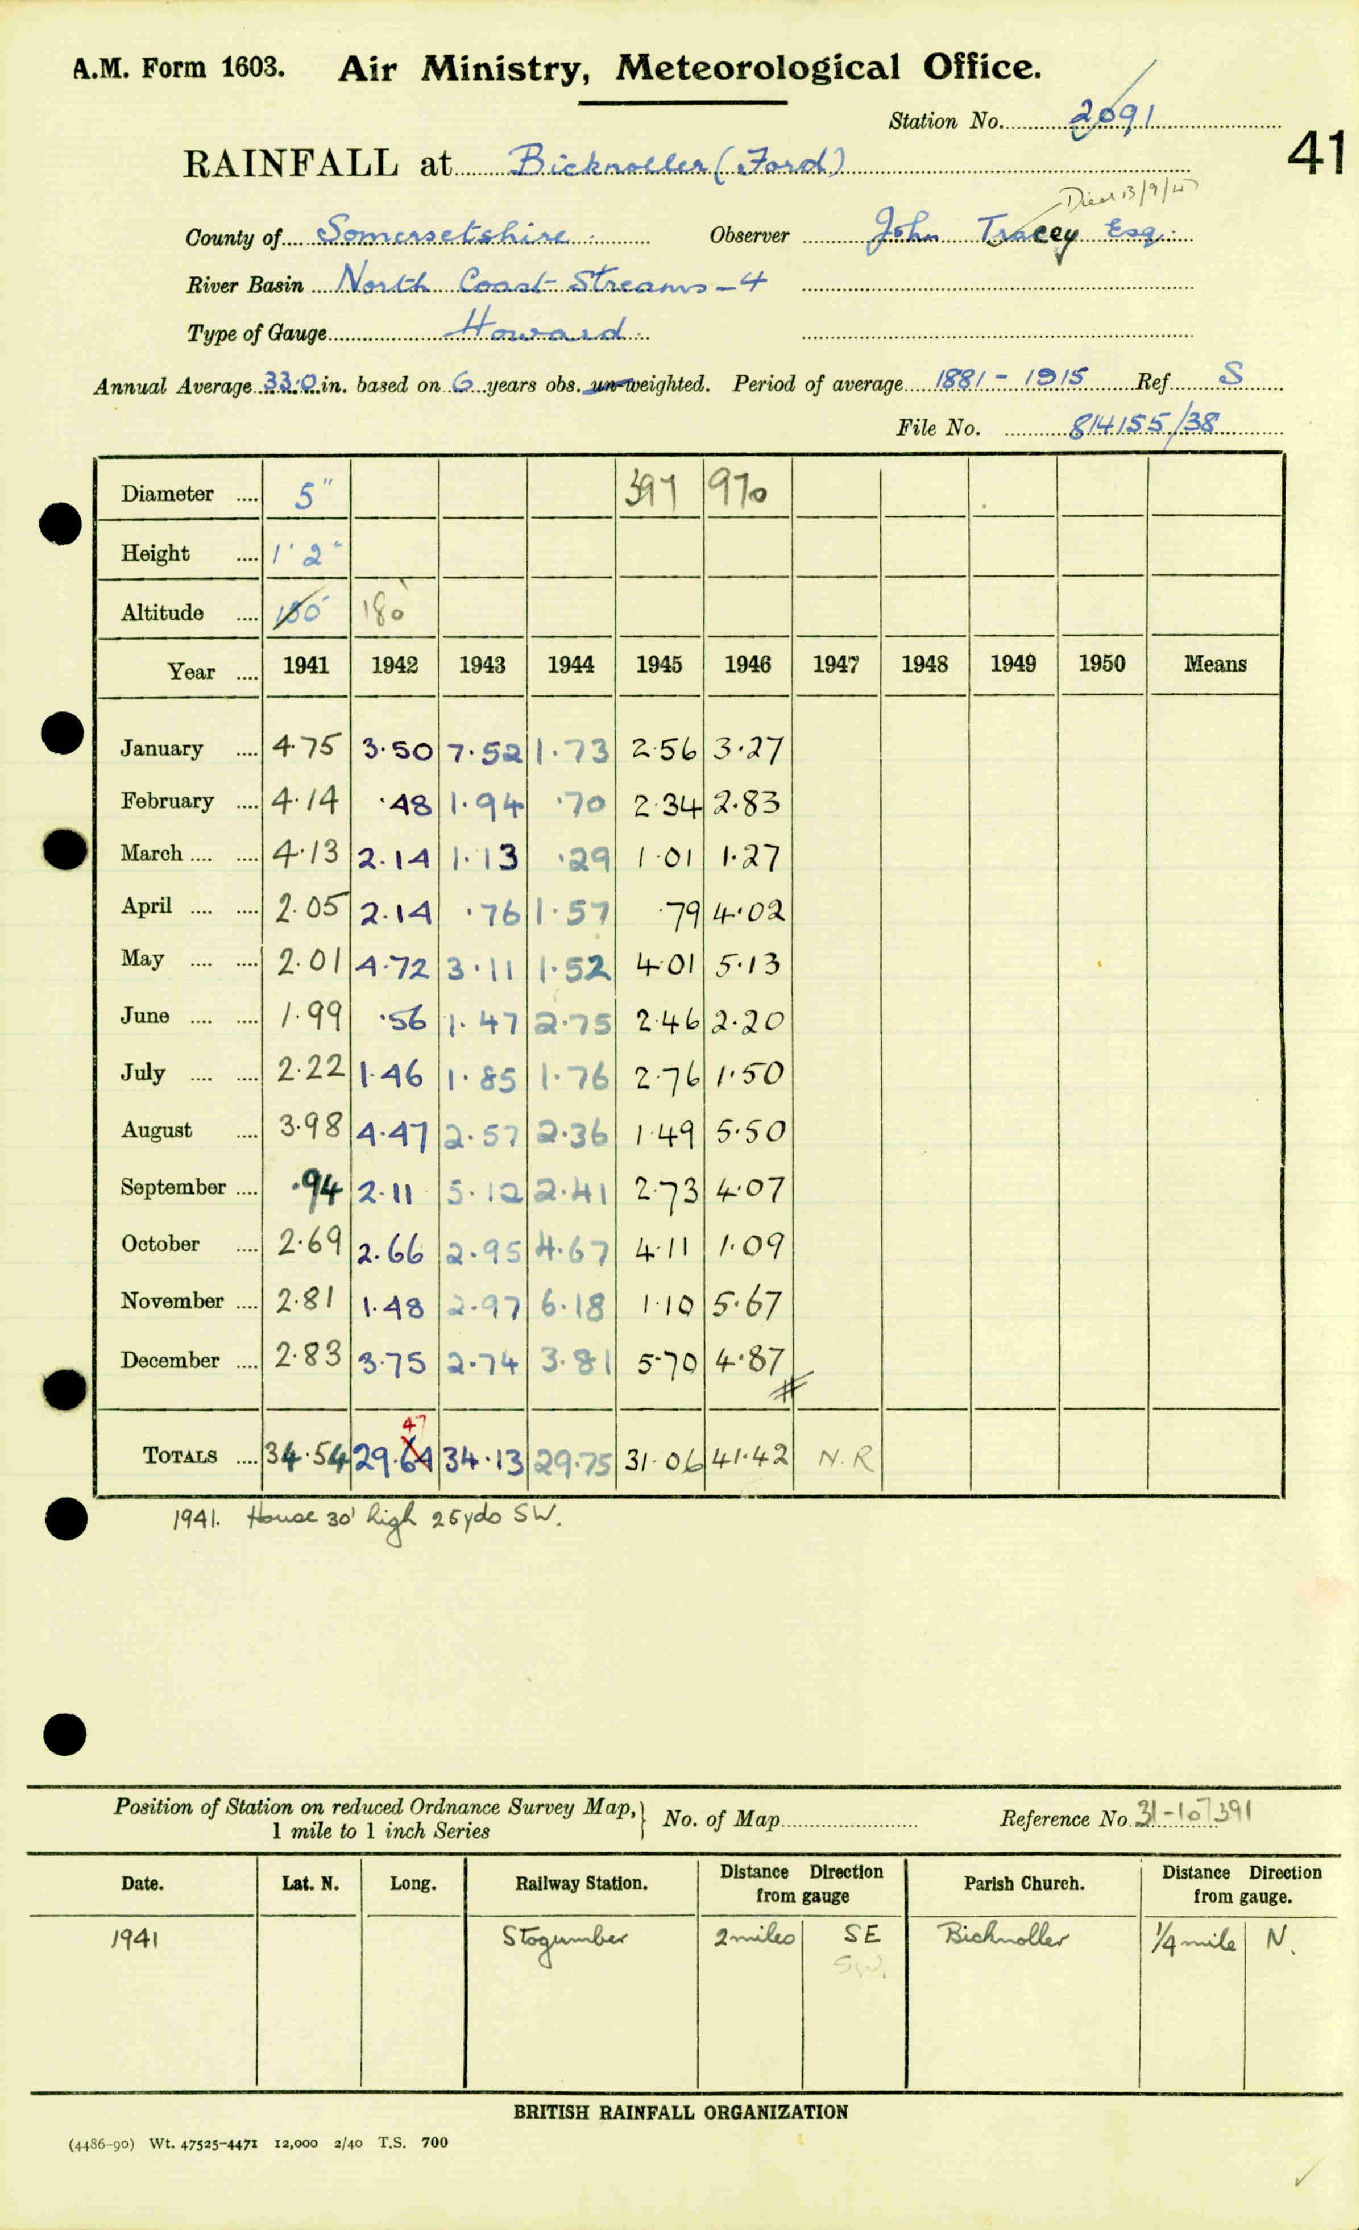 A.M. Form 1603. Air Ministry, Meteorological Office.
Station No. 2091
41
RAINFALL at Bicknoller (Ford)
Died 13/9/47
County of Somersetshire. Observer John Tracey Esq.
River Basin North Coast Streams - 4
Type of Gauge Howard
Annual Average 33.0 in. based on 6 years obs. un-weighted. Period of average 1881 - 1915 Ref S
File No. 814155/38
Diameter .... 5" 397 970
Height .... 1' 2"
Altitude .... 180'
Year .... 1941 1942 1943 1944 1945 1946 1947 1948 1949 1950 Means
January .... 4.75 3.50 7.52 1.73 2.56 3.27
February .... 4.14 .48 1.94 .70 2.34 2.83
March .... .... 4.13 2.14 1.13 .29 1.01 1.27
April .... .... 2.05 2.14 .76 1.57 .79 4.02
May .... .... 2.01 4.72 3.11 1.52 4.01 5.13
June .... .... 1.99 .56 1.47 2.75 2.46 2.20
July .... .... 2.22 1.46 1.85 1.76 2.76 1.50
August .... 3.98 4.47 2.57 2.36 1.49 5.50
September .... .94 2.11 5.12 2.41 2.73 4.07
October .... 2.69 2.66 2.95 4.67 4.11 1.09
November .... 2.81 1.48 2.97 6.18 1.10 5.67
December .... 2.83 3.75 2.74 3.81 5.70 4.87
47
TOTALS .... 34.54 29.64 34.13 29.75 31.06 41.42 N.R
1941. House 30' high 25yds SW.
Position of Station on reduced Ordnance Survey Map, } No. of Map Reference No. 31-107391
1 mile to 1 inch Series
Date. Lat. N. Long. Railway Station. Distance Direction from gauge Parish Church. Distance Direction from gauge.
1941 Stogumber 2 miles SE Bicknoller 1/4 mile N.
S.W.
BRITISH RAINFALL ORGANIZATION
(4486-90) Wt. 47525-4471 12,000 2/40 T.S. 700